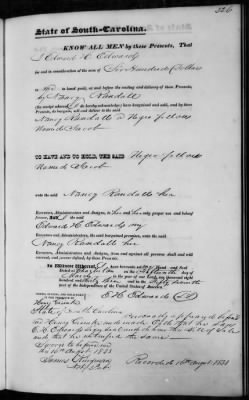 326
State of South-Carolina.
KNOW ALL MEN by these Presents, That
I Edward H. Edwards
for and in consideration of the sum of Six Hundred Dollars
to me in hand paid, at and before the sealing and delivery of these Presents,
by Nancy Randall
(the receipt whereof I do hereby acknowledge) have bargained and sold, and by these
Presents, do bargain, sell and deliver to the said
Nancy Randall a Negro fellow
Named Jacob
TO HAVE AND TO HOLD, THE SAID Negro fellow
Named Jacob
unto the said Nancy Randall her
Executors, Administrators and Assigns, to her and her only proper use and behoof
forever. And I the said
Edward H. Edwards my
Executors, and Administrators, the said bargained premises, unto the said
Nancy Randall her
Executors, Administrators and Assigns, from and against all persons shall and will
warrant, and forever defend, by these Presents.
In Witness Whereof, I have hereunto set my Hand and Seal
Dated at Charleston on the day of
March in the year of our Lord, one thousand eight
hundred and thirty one and in the Fifty fifth
year of the Independence of the United States of America.
SIGNED, SEALED, AND DELIVERED
IN THE PRESENCE OF
E. H. Edwards
Henry
State of South Carolina
Personally appeared before
me Henry who made Oath that he saw
E. H. Edwards sign the Bill of Sale
and that he witnessed the same
Sworn to before me
the 10th Augt 1831
James
Recorded 10th Augt 1831